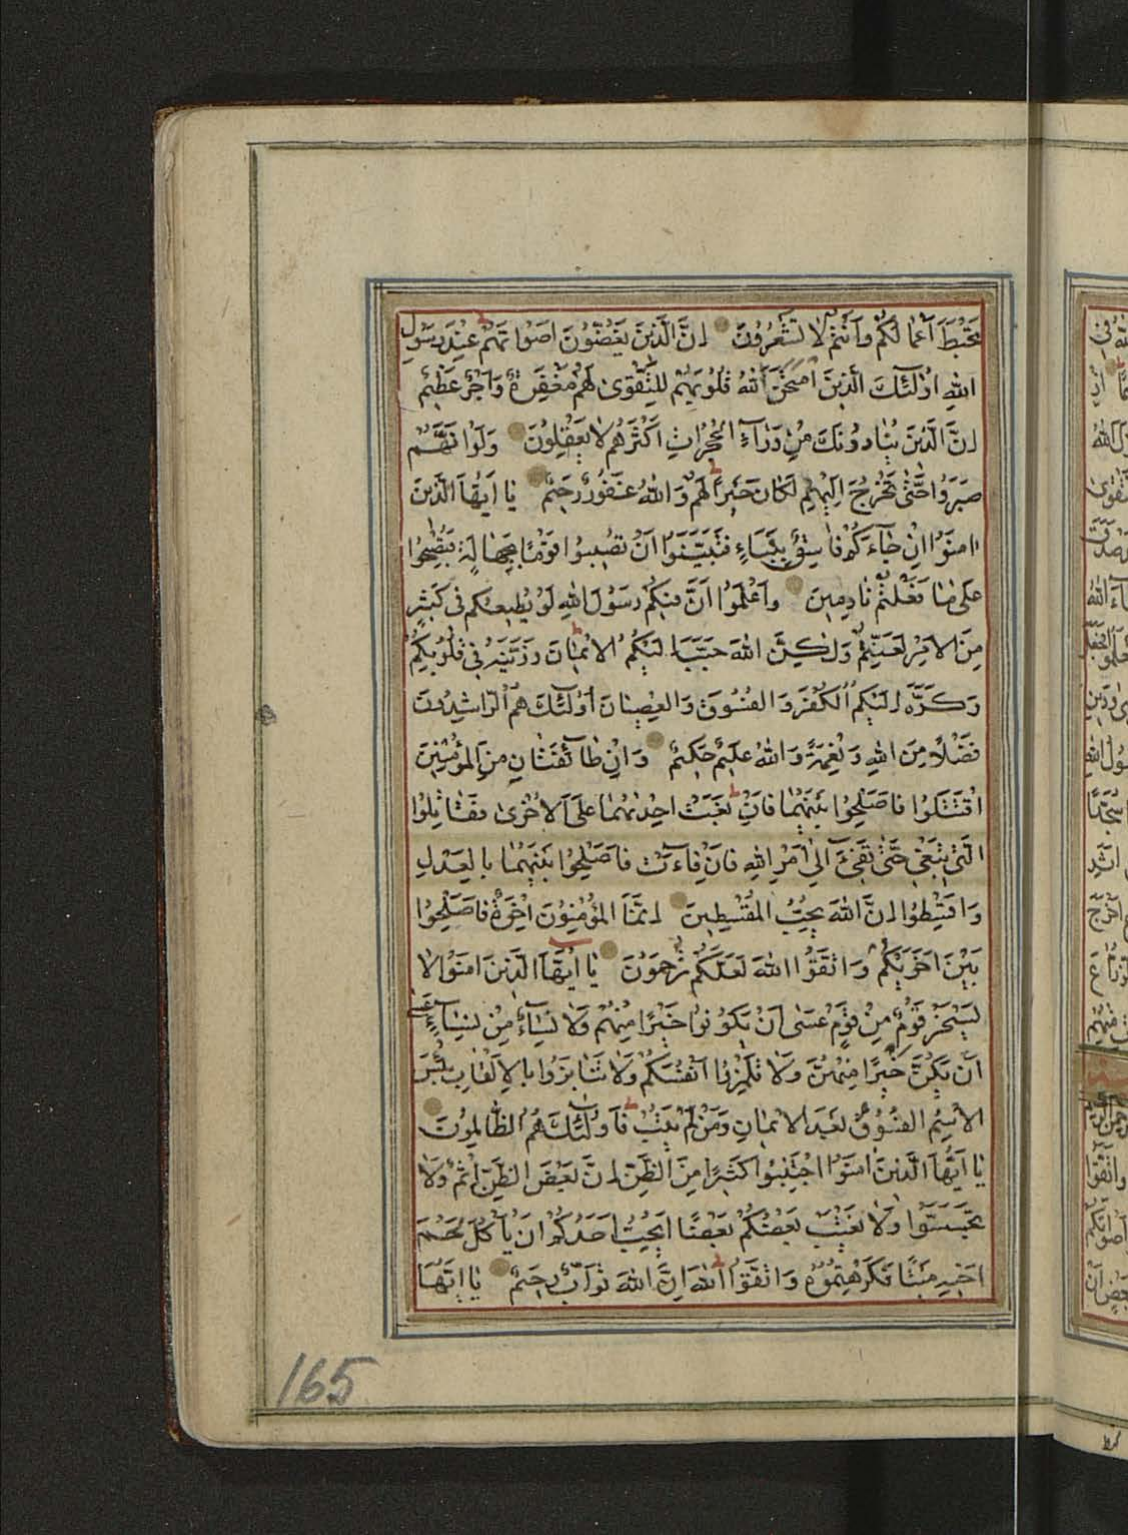 تَحْبَطَ أَعْمَالُكُمْ وَأَنْتُمْ لَا تَشْعُرُونَ إِنَّ الَّذِينَ يَغُضُّونَ أَصْوَاتَهُمْ عِنْدَ رَسُولِ
اللَّهِ أُولَٰئِكَ الَّذِينَ امْتَحَنَ اللَّهُ قُلُوبَهُمْ لِلتَّقْوَىٰ لَهُمْ مَغْفِرَةٌ وَأَجْرٌ عَظِيمٌ
إِنَّ الَّذِينَ يُنَادُونَكَ مِنْ وَرَاءِ الْحُجُرَاتِ أَكْثَرُهُمْ لَا يَعْقِلُونَ وَلَوْ أَنَّهُمْ
صَبَرُوا حَتَّىٰ تَخْرُجَ إِلَيْهِمْ لَكَانَ خَيْرًا لَهُمْ وَاللَّهُ غَفُورٌ رَحِيمٌ يَا أَيُّهَا الَّذِينَ
آمَنُوا إِنْ جَاءَكُمْ فَاسِقٌ بِنَبَإٍ فَتَبَيَّنُوا أَنْ تُصِيبُوا قَوْمًا بِجَهَالَةٍ فَتُصْبِحُوا
عَلَىٰ مَا فَعَلْتُمْ نَادِمِينَ وَاعْلَمُوا أَنَّ فِيكُمْ رَسُولَ اللَّهِ لَوْ يُطِيعُكُمْ فِي كَثِيرٍ
مِنَ الْأَمْرِ لَعَنِتُّمْ وَلَٰكِنَّ اللَّهَ حَبَّبَ إِلَيْكُمُ الْإِيمَانَ وَزَيَّنَهُ فِي قُلُوبِكُمْ
وَكَرَّهَ إِلَيْكُمُ الْكُفْرَ وَالْفُسُوقَ وَالْعِصْيَانَ أُولَٰئِكَ هُمُ الرَّاشِدُونَ
فَضْلًا مِنَ اللَّهِ وَنِعْمَةً وَاللَّهُ عَلِيمٌ حَكِيمٌ وَإِنْ طَائِفَتَانِ مِنَ الْمُؤْمِنِينَ
اقْتَتَلُوا فَأَصْلِحُوا بَيْنَهُمَا فَإِنْ بَغَتْ إِحْدَاهُمَا عَلَى الْأُخْرَىٰ فَقَاتِلُوا
الَّتِي تَبْغِي حَتَّىٰ تَفِيءَ إِلَىٰ أَمْرِ اللَّهِ فَإِنْ فَاءَتْ فَأَصْلِحُوا بَيْنَهُمَا بِالْعَدْلِ
وَأَقْسِطُوا إِنَّ اللَّهَ يُحِبُّ الْمُقْسِطِينَ إِنَّمَا الْمُؤْمِنُونَ إِخْوَةٌ فَأَصْلِحُوا
بَيْنَ أَخَوَيْكُمْ وَاتَّقُوا اللَّهَ لَعَلَّكُمْ تُرْحَمُونَ يَا أَيُّهَا الَّذِينَ آمَنُوا لَا
يَسْخَرْ قَوْمٌ مِنْ قَوْمٍ عَسَىٰ أَنْ يَكُونُوا خَيْرًا مِنْهُمْ وَلَا نِسَاءٌ مِنْ نِسَاءٍ عَسَىٰ
أَنْ يَكُنَّ خَيْرًا مِنْهُنَّ وَلَا تَلْمِزُوا أَنْفُسَكُمْ وَلَا تَنَابَزُوا بِالْأَلْقَابِ بِئْسَ
الِاسْمُ الْفُسُوقُ بَعْدَ الْإِيمَانِ وَمَنْ لَمْ يَتُبْ فَأُولَٰئِكَ هُمُ الظَّالِمُونَ
يَا أَيُّهَا الَّذِينَ آمَنُوا اجْتَنِبُوا كَثِيرًا مِنَ الظَّنِّ إِنَّ بَعْضَ الظَّنِّ إِثْمٌ وَلَا
تَجَسَّسُوا وَلَا يَغْتَبْ بَعْضُكُمْ بَعْضًا أَيُحِبُّ أَحَدُكُمْ أَنْ يَأْكُلَ لَحْمَ
أَخِيهِ مَيْتًا فَكَرِهْتُمُوهُ وَاتَّقُوا اللَّهَ إِنَّ اللَّهَ تَوَّابٌ رَحِيمٌ يَا أَيُّهَا
165